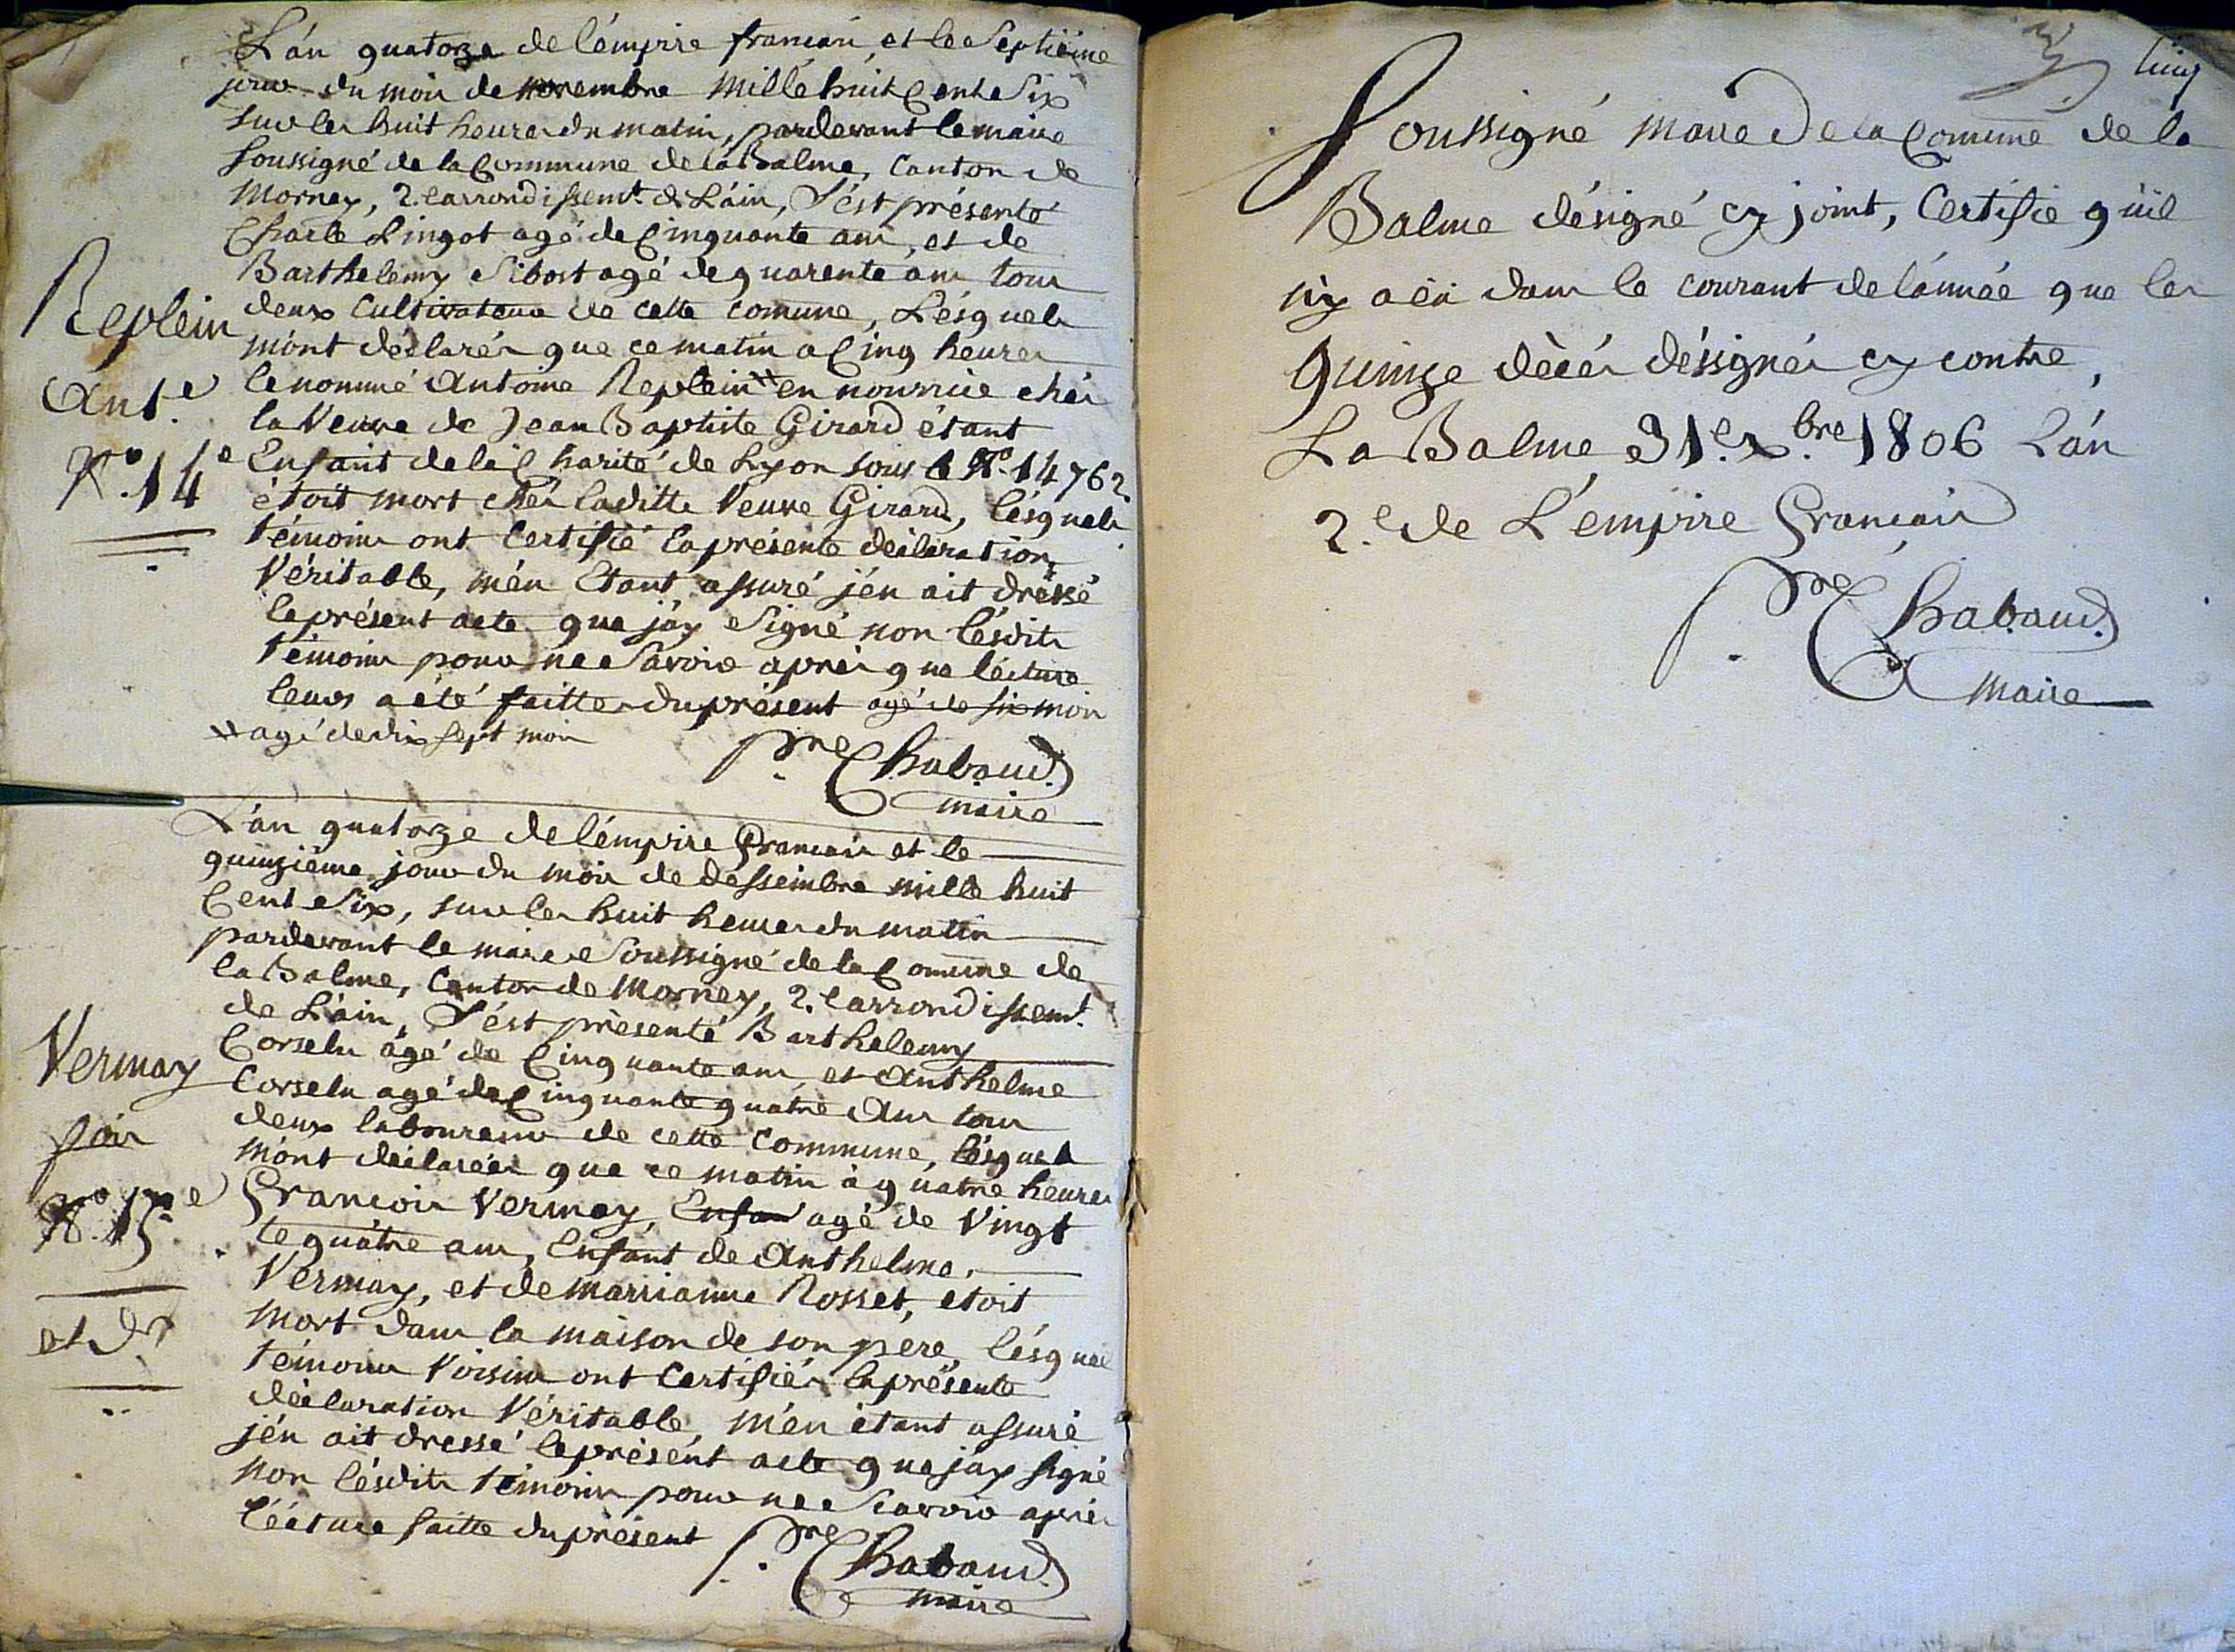 L'án quatorze de l'émpire francais et le Septiéme
jour du mois de novembre mille huit Cente Six
sur les huit heures du matin, pardevant le maire
Soussigné de la Commune de la Balme, Canton de
Mornay, 2.e arrondissemt. de L'áin, S'ést présenté
Charle Lingot agé de Cinquante ans, et de
Barthelemy Sibost agé de quarente ans tous
deux Cultivateurs de cette comune, Lésquels
m'ónt déclarés que ce matin a Cinq heures
le nommé Antoine Replein # en nourrice chés
la Veuve de Jean Baptiste Girard étant
Enfant de la Charité de Lyon sous le No. 14762.
étoit mort chés laditte Veuve Girard, lésquels
témoins ont Certifié la présente déclaration
Véritable, m'én Etant assuré j'én ait dréssé
le présent acte que j'áy Signé non lésdits
témoins pour ne Savoir aprés que lécture
leurs a été faitte du présent agé de six mois
# agé de dix sept mois
Pre Chabaud
maire
Replein
Ant.e
No. 14e
L'án quatorze de l'émpire francais et le
quinziéme jour du mois de dessembre mille huit
Cent Six, sur les huit heures du matin
pardevant le maire Soussigné de la Comune de
la Balme, Canton de Mornay, 2.e arrondissemt.
de L'áin, S'ést présenté Barthelemy
Corselu âgé de Cinquante ans et Anthelme
Corselu agé de Cinquante quatre Ans tous
deux laboureurs de cette Commune, lésquels
m'ónt déclarées que ce matin à quatre heures
Francois Vermay, Enfan agé de Vingt
te quátre ans, Enfant de Anthelme
Vermay, et de Marrianne Rosset, etoit
Mort dans la maison de son pere, lésquel
témoins Voisins ont Certifiés la présente
déclaration Véritable, m'én étant assuré
j'én ait dressé le présént acte que j'áy signé
non lésdits témoins pour ne Scavoir aprés
lécture faitte du présent
Pre Chabaud
maire
Vermay
fois
No. 15.e
et Dr
Soussigné maire de la Comune de la
Balme désigné cy joint, Certifie qu'il
n'y a éû dans le courant de l'ánnée que les
quinze décés désignés cy contre,
La Balme 31.e xbre. 1806 L'án
2.e de L'émpire francais
Pre Chabaud
Maire